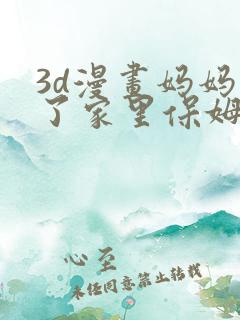 3d漫畫妈妈
了家里保姆
心至
未经同意禁止转载